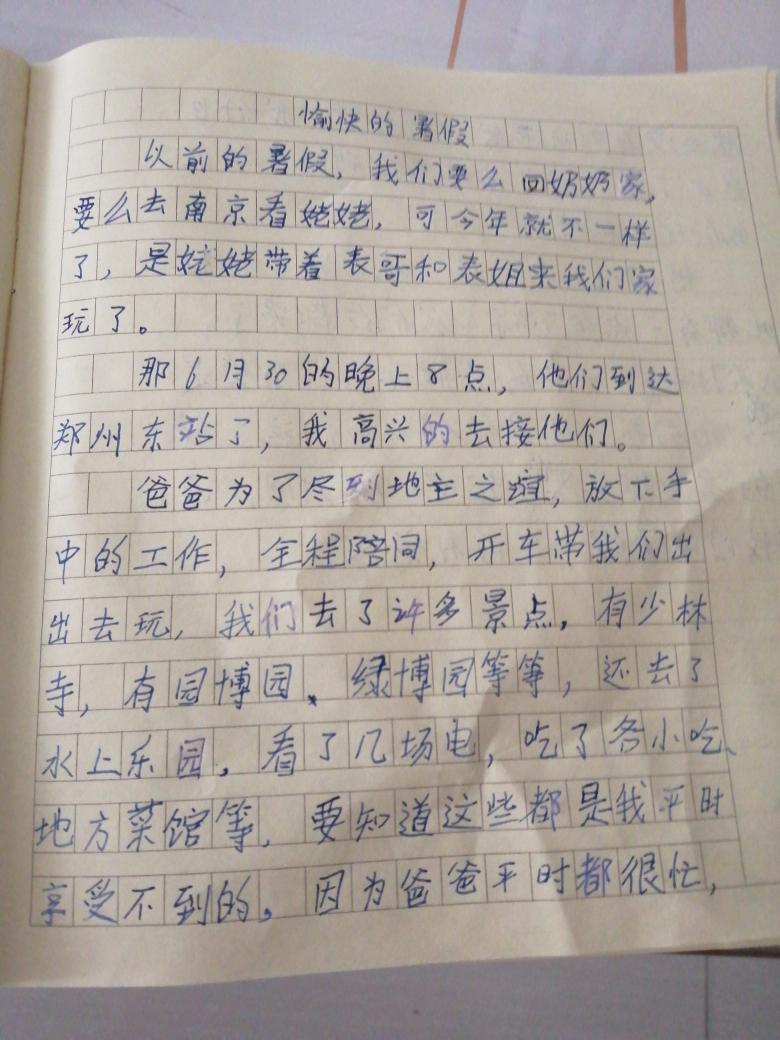 愉快的暑假
以前的暑假，我们要么回奶奶家，
要么去南京看姥姥，可今年就不一样
了，是姥姥带着表哥和表姐来我们家
玩了。
那6月30的晚上8点，他们到达
郑州东站了，我高兴的去接他们。
爸爸为了尽到地主之谊，放下手
中的工作，全程陪同，开车带我们出
出去玩，我们去了许多景点，有少林
寺，有园博园、绿博园等等，还去了
水上乐园，看了几场电，吃了各小吃、
地方菜馆等，要知道这些都是我平时
享受不到的。因为爸爸平时都很忙，